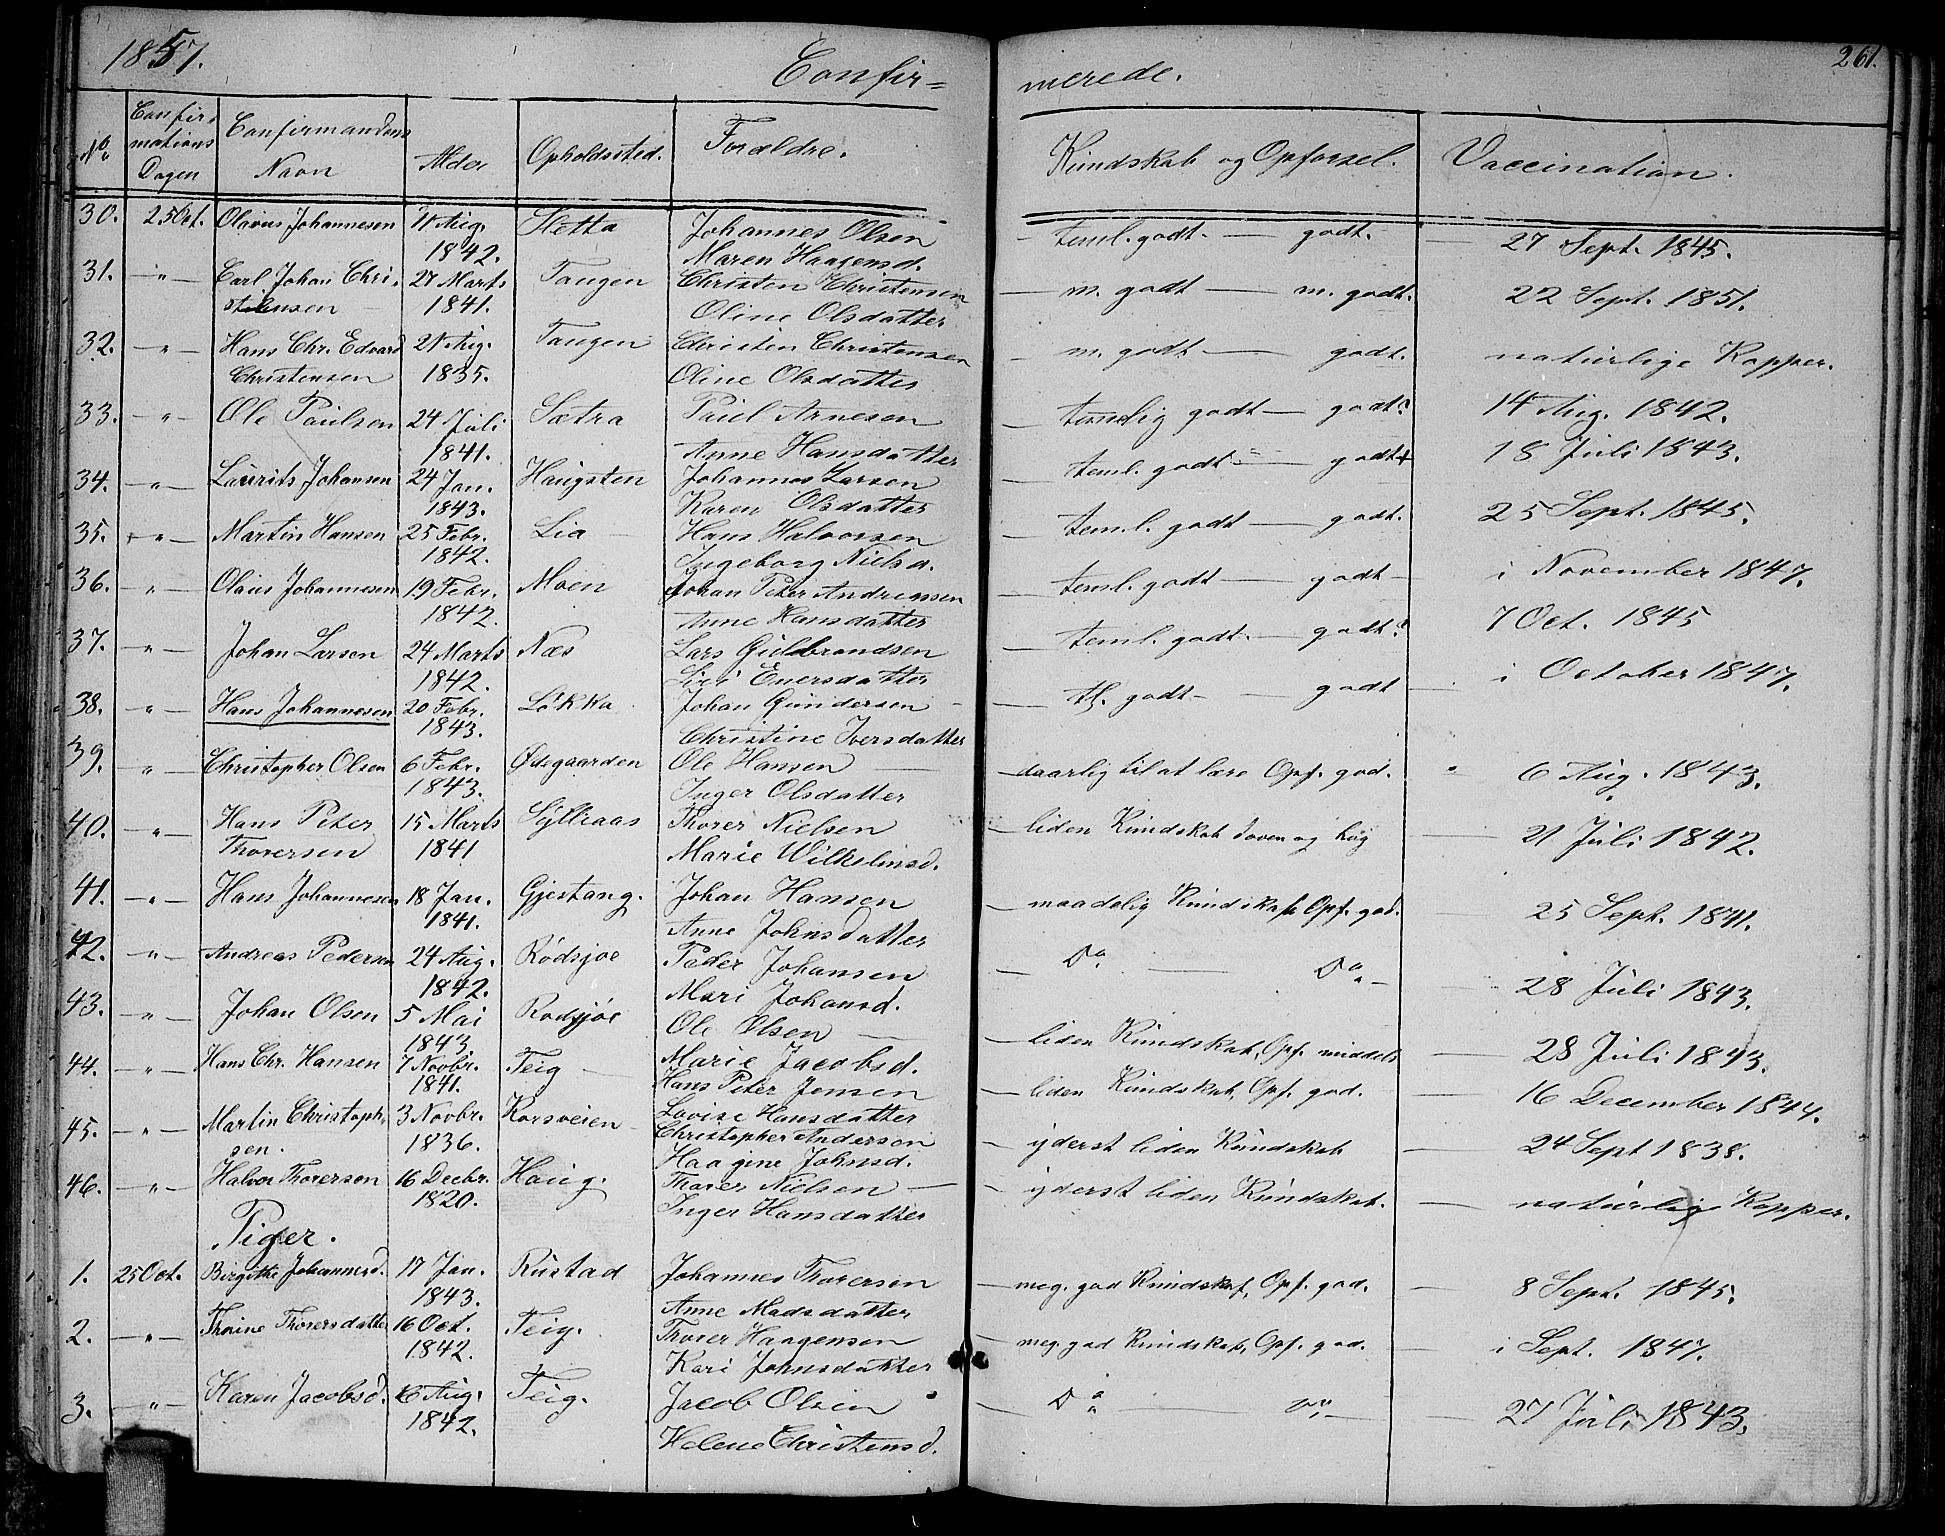 1857. Confir= merede. 261.
No. Confirmations Dagen Confirmandens Navn Alder Opholdssted. Forældre. Kundskab og Opførsel. Vaccination.
30. 25 Oct. Olavus Johannesen 11 Aug. 1842. Sletta Johannes Olsen Maren Haagensd. teml. godt. — godt. — 27 Sept. 1845.
31. —"— Carl Johan Christensen 27 Marts 1841. Tangen Christen Christensen Oline Olsdatter m. godt — m. godt. 22 Sept. 1851.
32. —"— Hans Chr. Edvard Christensen 21 Aug. 1835. Tangen Christen Christensen Oline Olsdatter m. godt — godt. naturlige Kopper.
33. —"— Ole Paulsen 24 Juli 1841. Sætra Paul Arnesen Anne Hansdatter temelig godt — godt. 14 Aug. 1842.
34. —"— Laurits Johansen 24 Jan. 1843. Haugsten Johannes Larsen Karen Olsdatter teml. godt — godt 18 Juli 1843.
35. —"— Martin Hansen 25 Febr. 1842. Lia Hans Halvorsen Ingeborg Nielsd. teml. godt — godt. 25 Sept. 1845.
36. —"— Olaus Johannesen 19 Febr. 1842. Moen Johan Peter Andreassen Anne Hansdatter teml. godt — godt — i November 1847.
37. —"— Johan Larsen 24 Marts 1842. Næs Lars Guldbrandsen Siri Enersdatter teml. godt. — godt. 7 Oct. 1845
38. —"— Hans Johannesen 20 Febr. 1843. Løkka Johan Gundersen Christine Iversdatter tl. godt — godt — i October 1847.
39. —"— Christopher Olsen 6 Febr. 1843. Ødegaarden Ole Hansen Inger Olsdatter daarlig til at lære Opf. god. 6 Aug. 1843.
40. —"— Hans Peter Thorersen 15 Marts 1841 Sylliaas Thorer Nielsen Marie Wilhelmsd. liden Kundskab doven og høg 21 Juli 1842.
41. —"— Hans Johannesen 18 Jan. 1841. Gjestang. Johan Hansen Anne Johnsdatter maadelig Kundskab Opf. god. 25 Sept. 1841.
42. —"— Andreas Pedersen 24 Aug. 1842. Rødsjøe Peder Johansen Mari Johansd. Do — Do — 28 Juli 1843.
43. —"— Johan Olsen 5 Mai 1843 Rødsjøe Ole Olsen Marie Jacobsd. liden Kundskab, Opf. middels — 28 Juli 1843.
44. —"— Hans Chr. Hansen 7 Novbr. 1841. Teig Hans Peter Jensen Lovise Hansdatter liden Kundskab, Opf. god. — 16 December 1844.
45. —"— Martin Christophsen. 3 Novbr. 1836. Korsveien Christopher Andersen Haagine Johnsd. yderst liden Kundskab — 24 Sept 1838.
46. —"— Halvor Thorersen 16 Decbr. 1820. Haug. Thorer Nielsen Inger Hansdatter yderst liden Kundskab. — naturlig Kopper.
Piger.
1. 25 Oct. Birgithe Johannesd. 17 Jan. 1843. Rustad Johannes Thorersen Anne Madsdatter meg. god Kundskab, Opf. god. — 8 Sept. 1845.
2. —"— Thorine Thorersdatter 16 Oct. 1842. Teig. Thorer Haagensen Kari Johnsdatter meg. god Kundskab, Opf. god. — i Sept. 1847.
3. —"— Karen Jacobsd. 16 Aug. 1842. Teig. Jacob Olsen Helene Christensd. Do — Do — 27 Juli 1843.